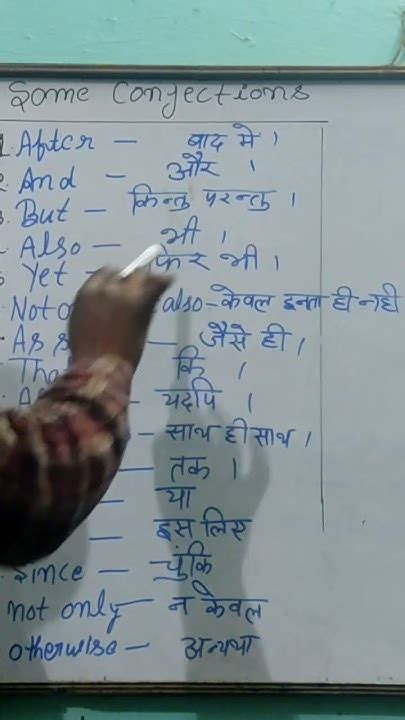 Some Conjections
After – बाद मे ।
And – और ।
But – किन्तु परन्तु ।
Also – भी ।
Yet – फिर भी ।
Not also – केवल इतना ही नही
As – जैसे ही ।
Tha – कि ।
– यद्दपि ।
– साथ ही साथ ।
– तक ।
– या
– इस लिए
Since – चुंकि
not only – न केवल
otherwise – अन्यथा